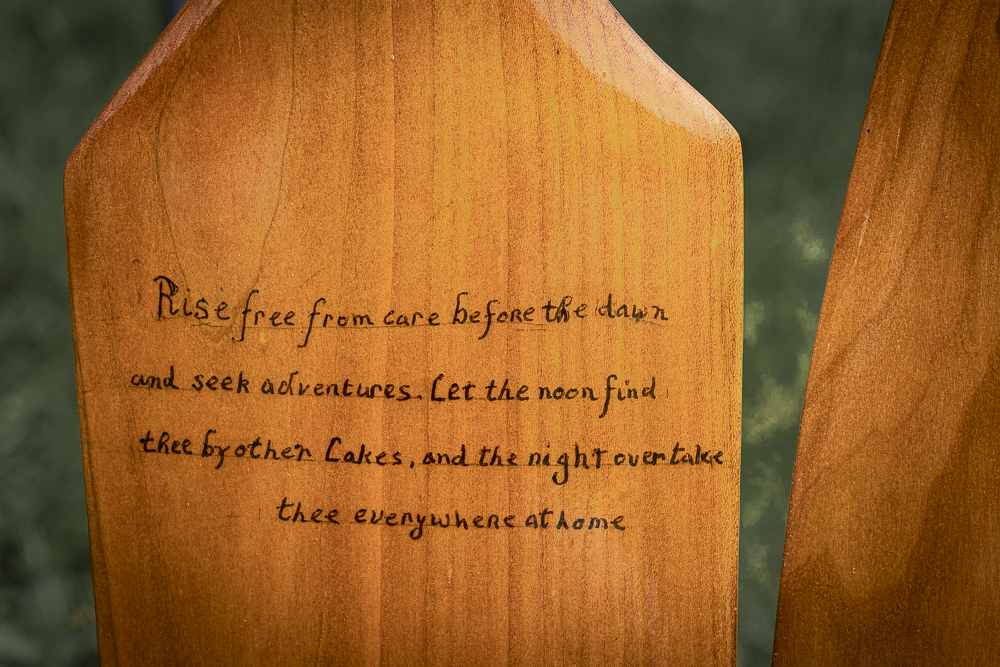 Rise free from care before the dawn
and seek adventures. Let the noon find
thee by other Lakes, and the night overtake
thee everywhere at home